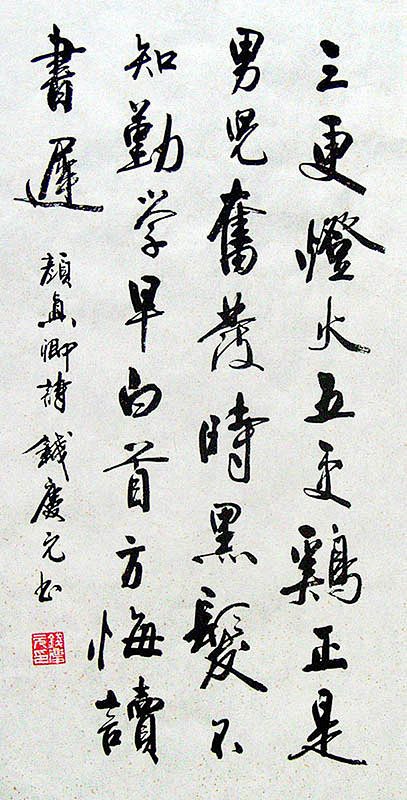 三更燈火五更鷄正是
男児奮發時黑髮不
知勤学早白首方悔讀
書遲
顔真卿詩 錢慶元书
錢慶元印